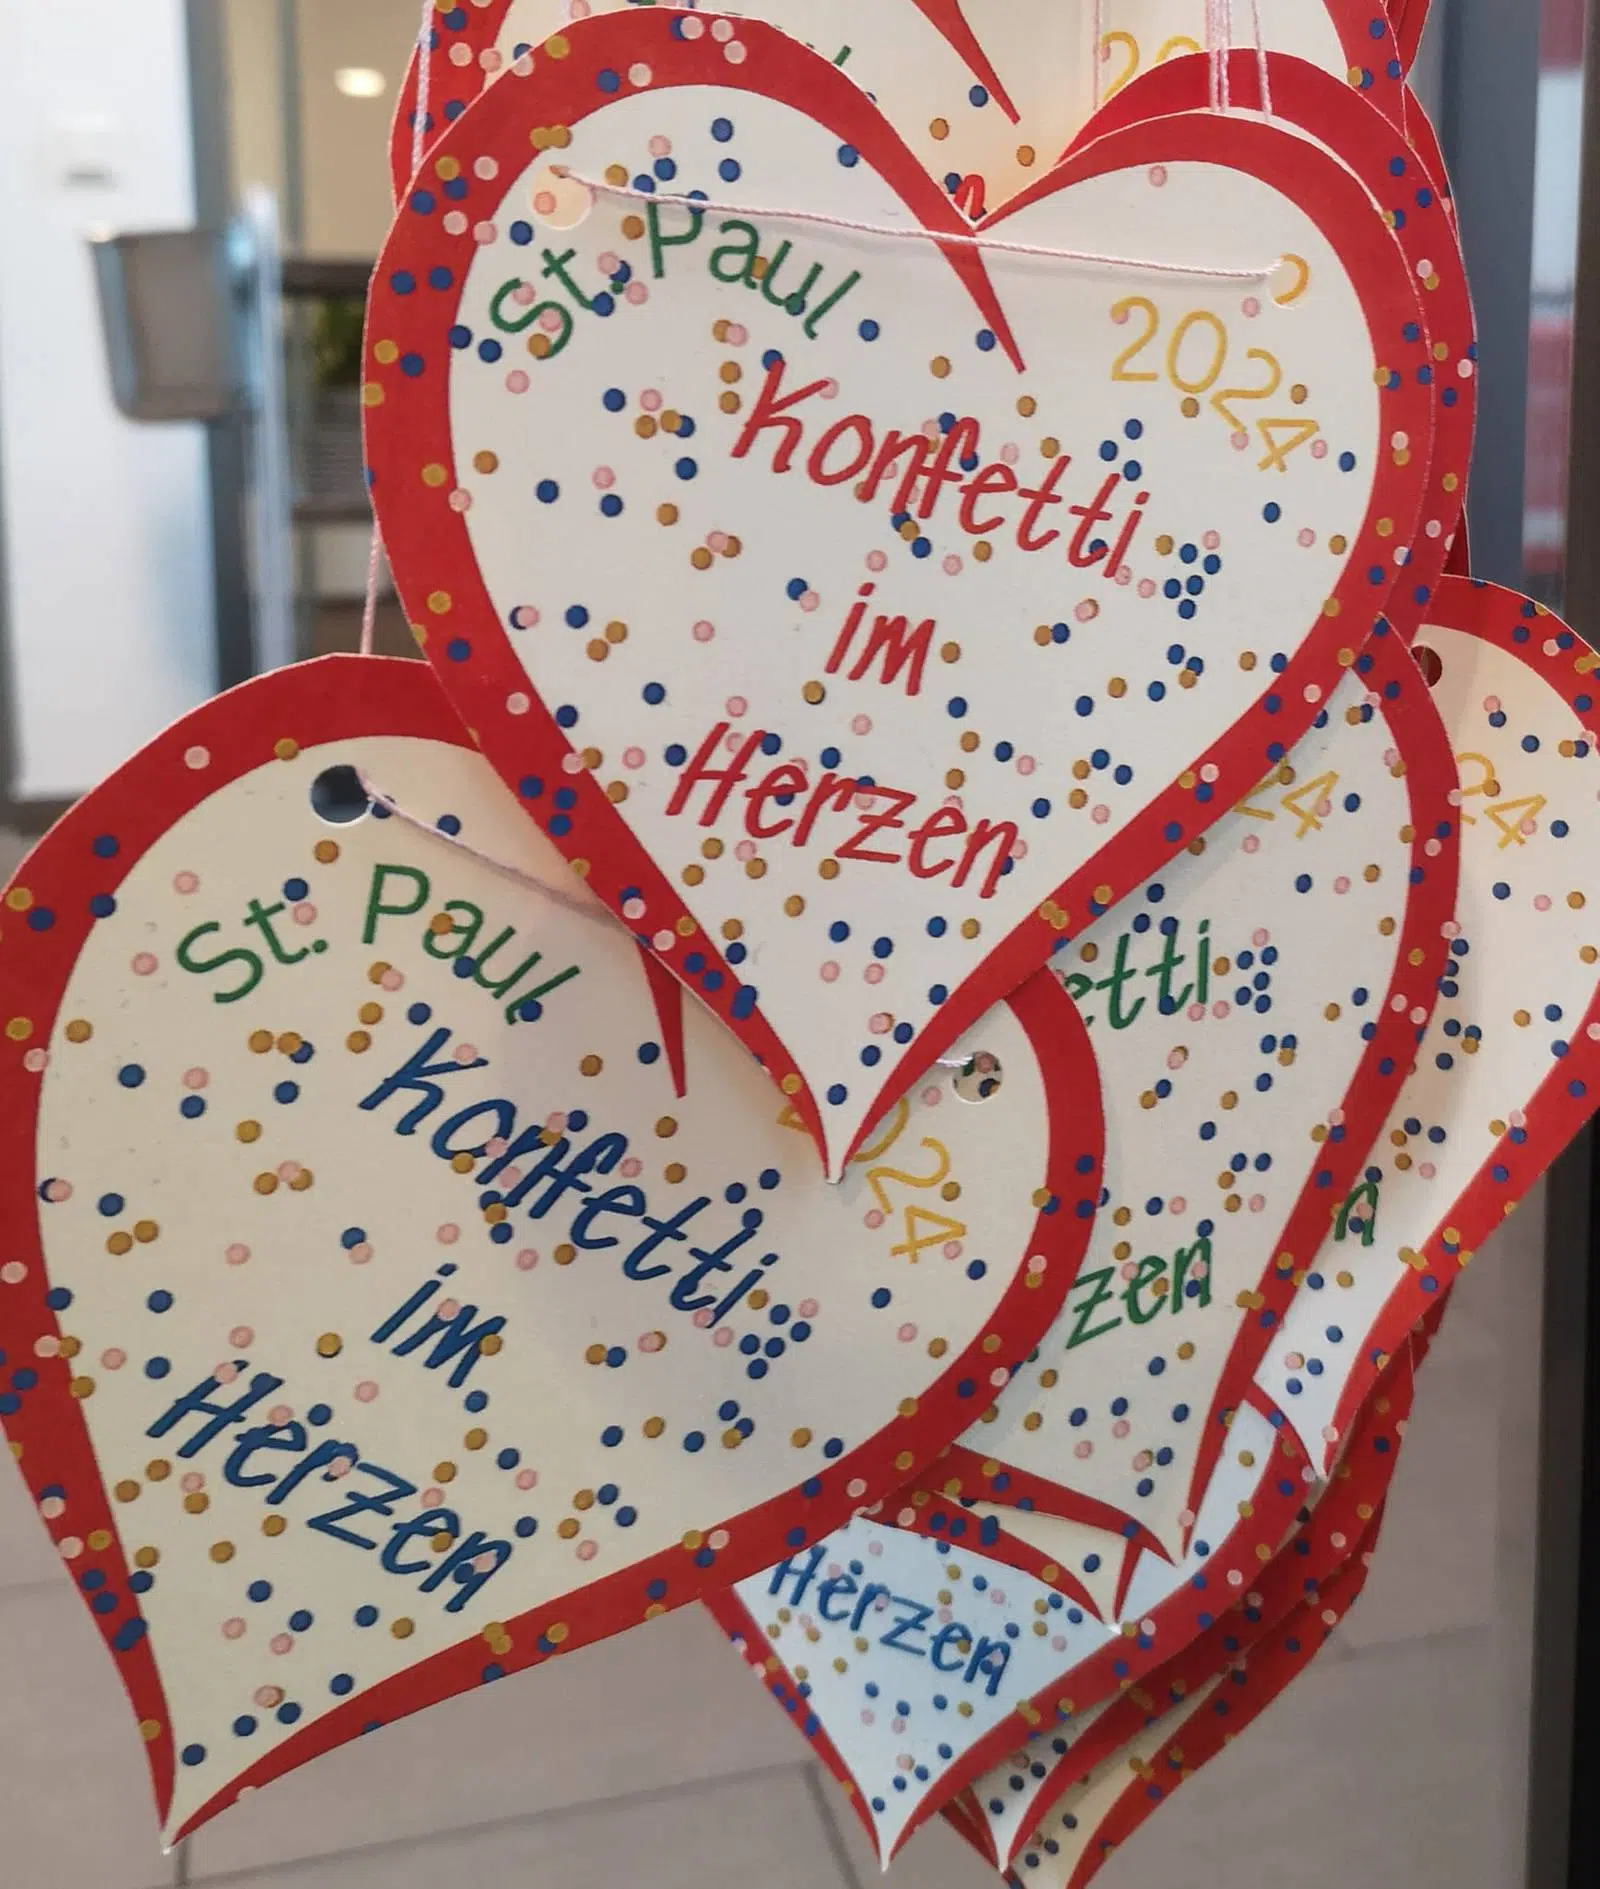 St. Paul
2024
Konfetti
im
Herzen
St. Paul
2024
Konfetti
im
Herzen
24
etti
zen
24
n
Herzen
20